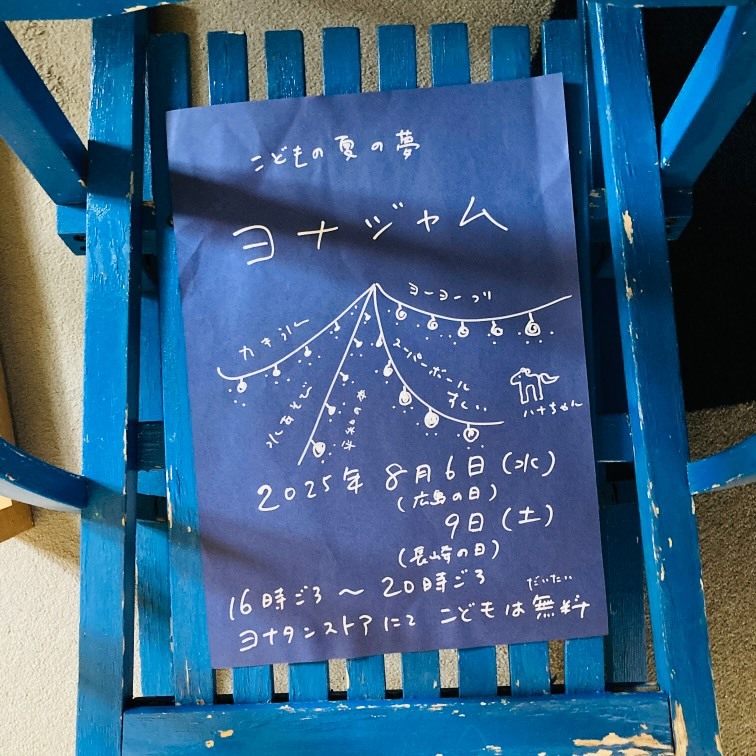 こどもの夏の夢
ヨナジャム
ヨーヨーヅリ
カキ氷
スーパーボール
すくい
水あそび
平和の夜
ハナちゃん
2025年 8月6日(水)
(広島の日)
9日(土)
(長崎の日)
16時ごろ～20時ごろ
だいたい
ヨナタンストアにて こどもは無料